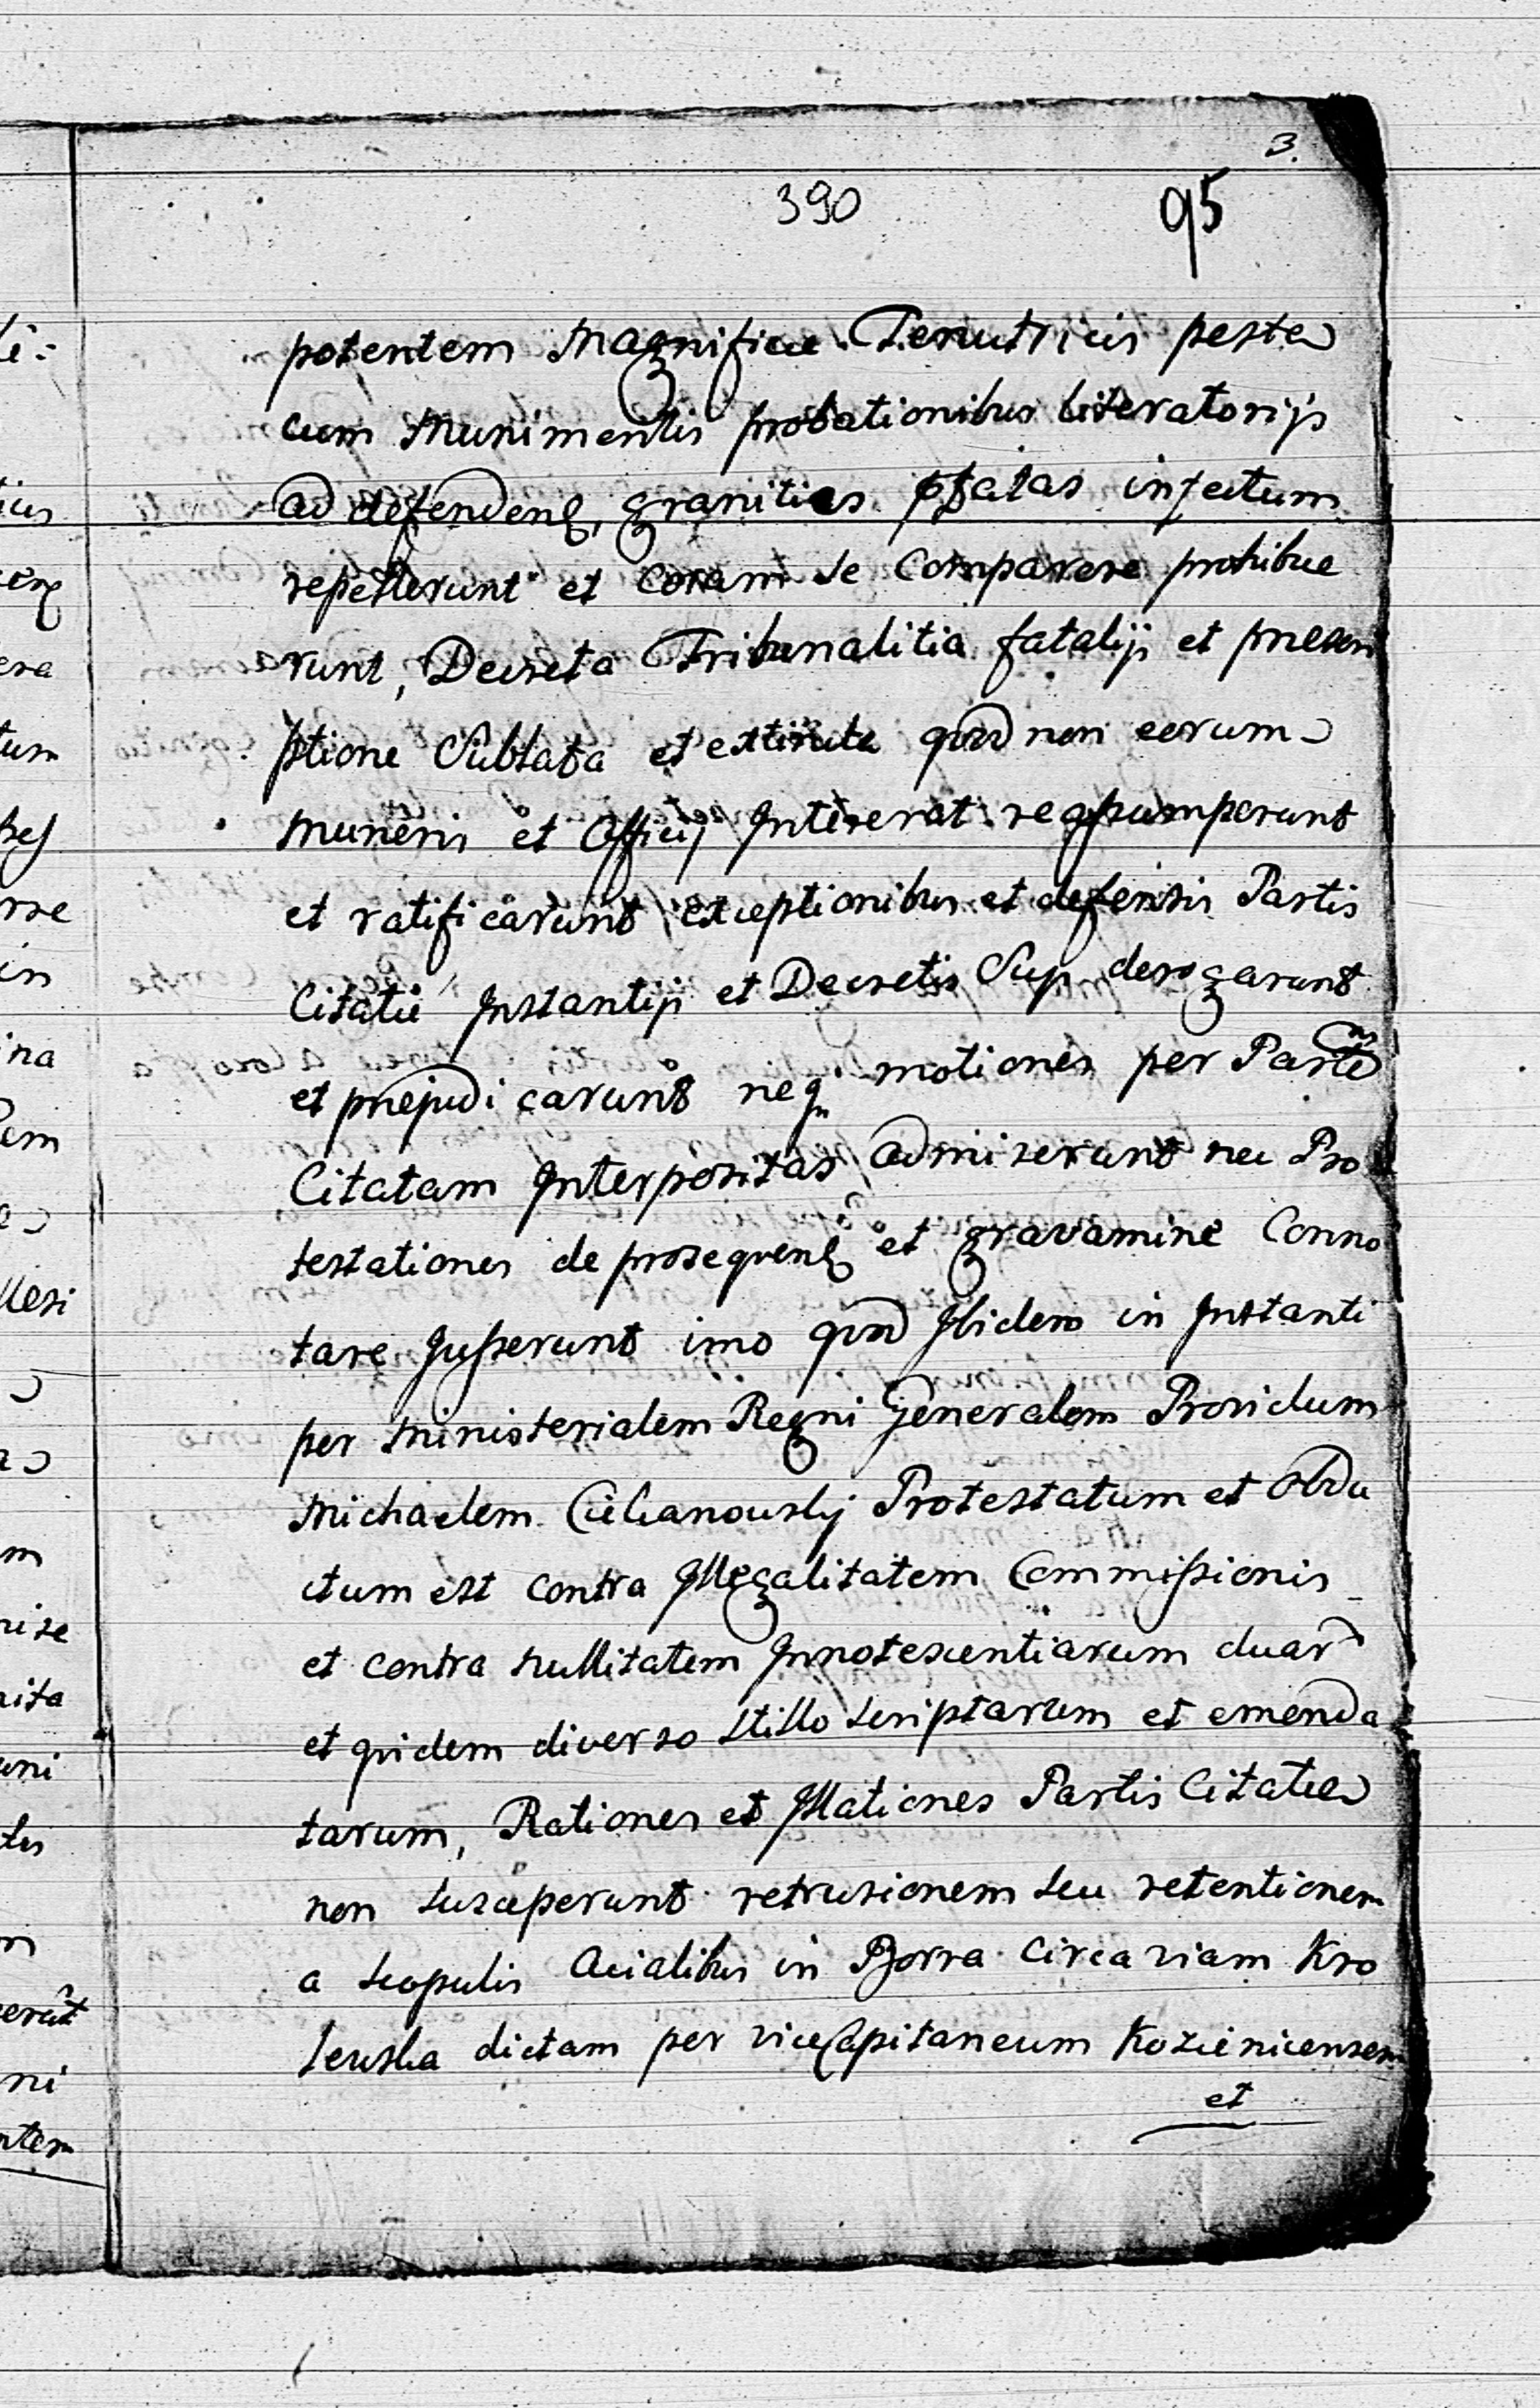 3.
390 95
potentem Magnificae Tenutricis peste
cum Munimentis probationibus literatorijs
ad defendend, granities pfatas infectum
repellerunt et Coram se Comparere prohibue
runt, Decreta Tribunalitia fatalij et praescri
ptione Sublata et extincta quod non eorum
Muneris et Officij Intererat reassumpserunt
et ratificarunt exceptionibus et defensis Partis
Citatae Instantiji et Decretis Sup derogarunt
et praejudicarunt neq motiones per Partem
Citatam Interpositas admiserunt nec Pro
testationes de prosequend et gravamine Conno
tare Jusserunt imo quod Ibidem in Instanti
per Ministerialem Regni Generalem Providum
Michaelem Protestatum et obdu
ctum est contra Illegalitatem Commissionis
et contra Nullitatem Innotescentiarum duar
et quidem diverso Stillo Scriptarum et emenda
tarum, Rationes et Illationes Partis Citatae
non Susceperunt retrusionem seu retentionem
a Scopulis Acialibus in Borra Circa viam Kro
lewska dictam per viceCapitaneum Kozienicensem
et